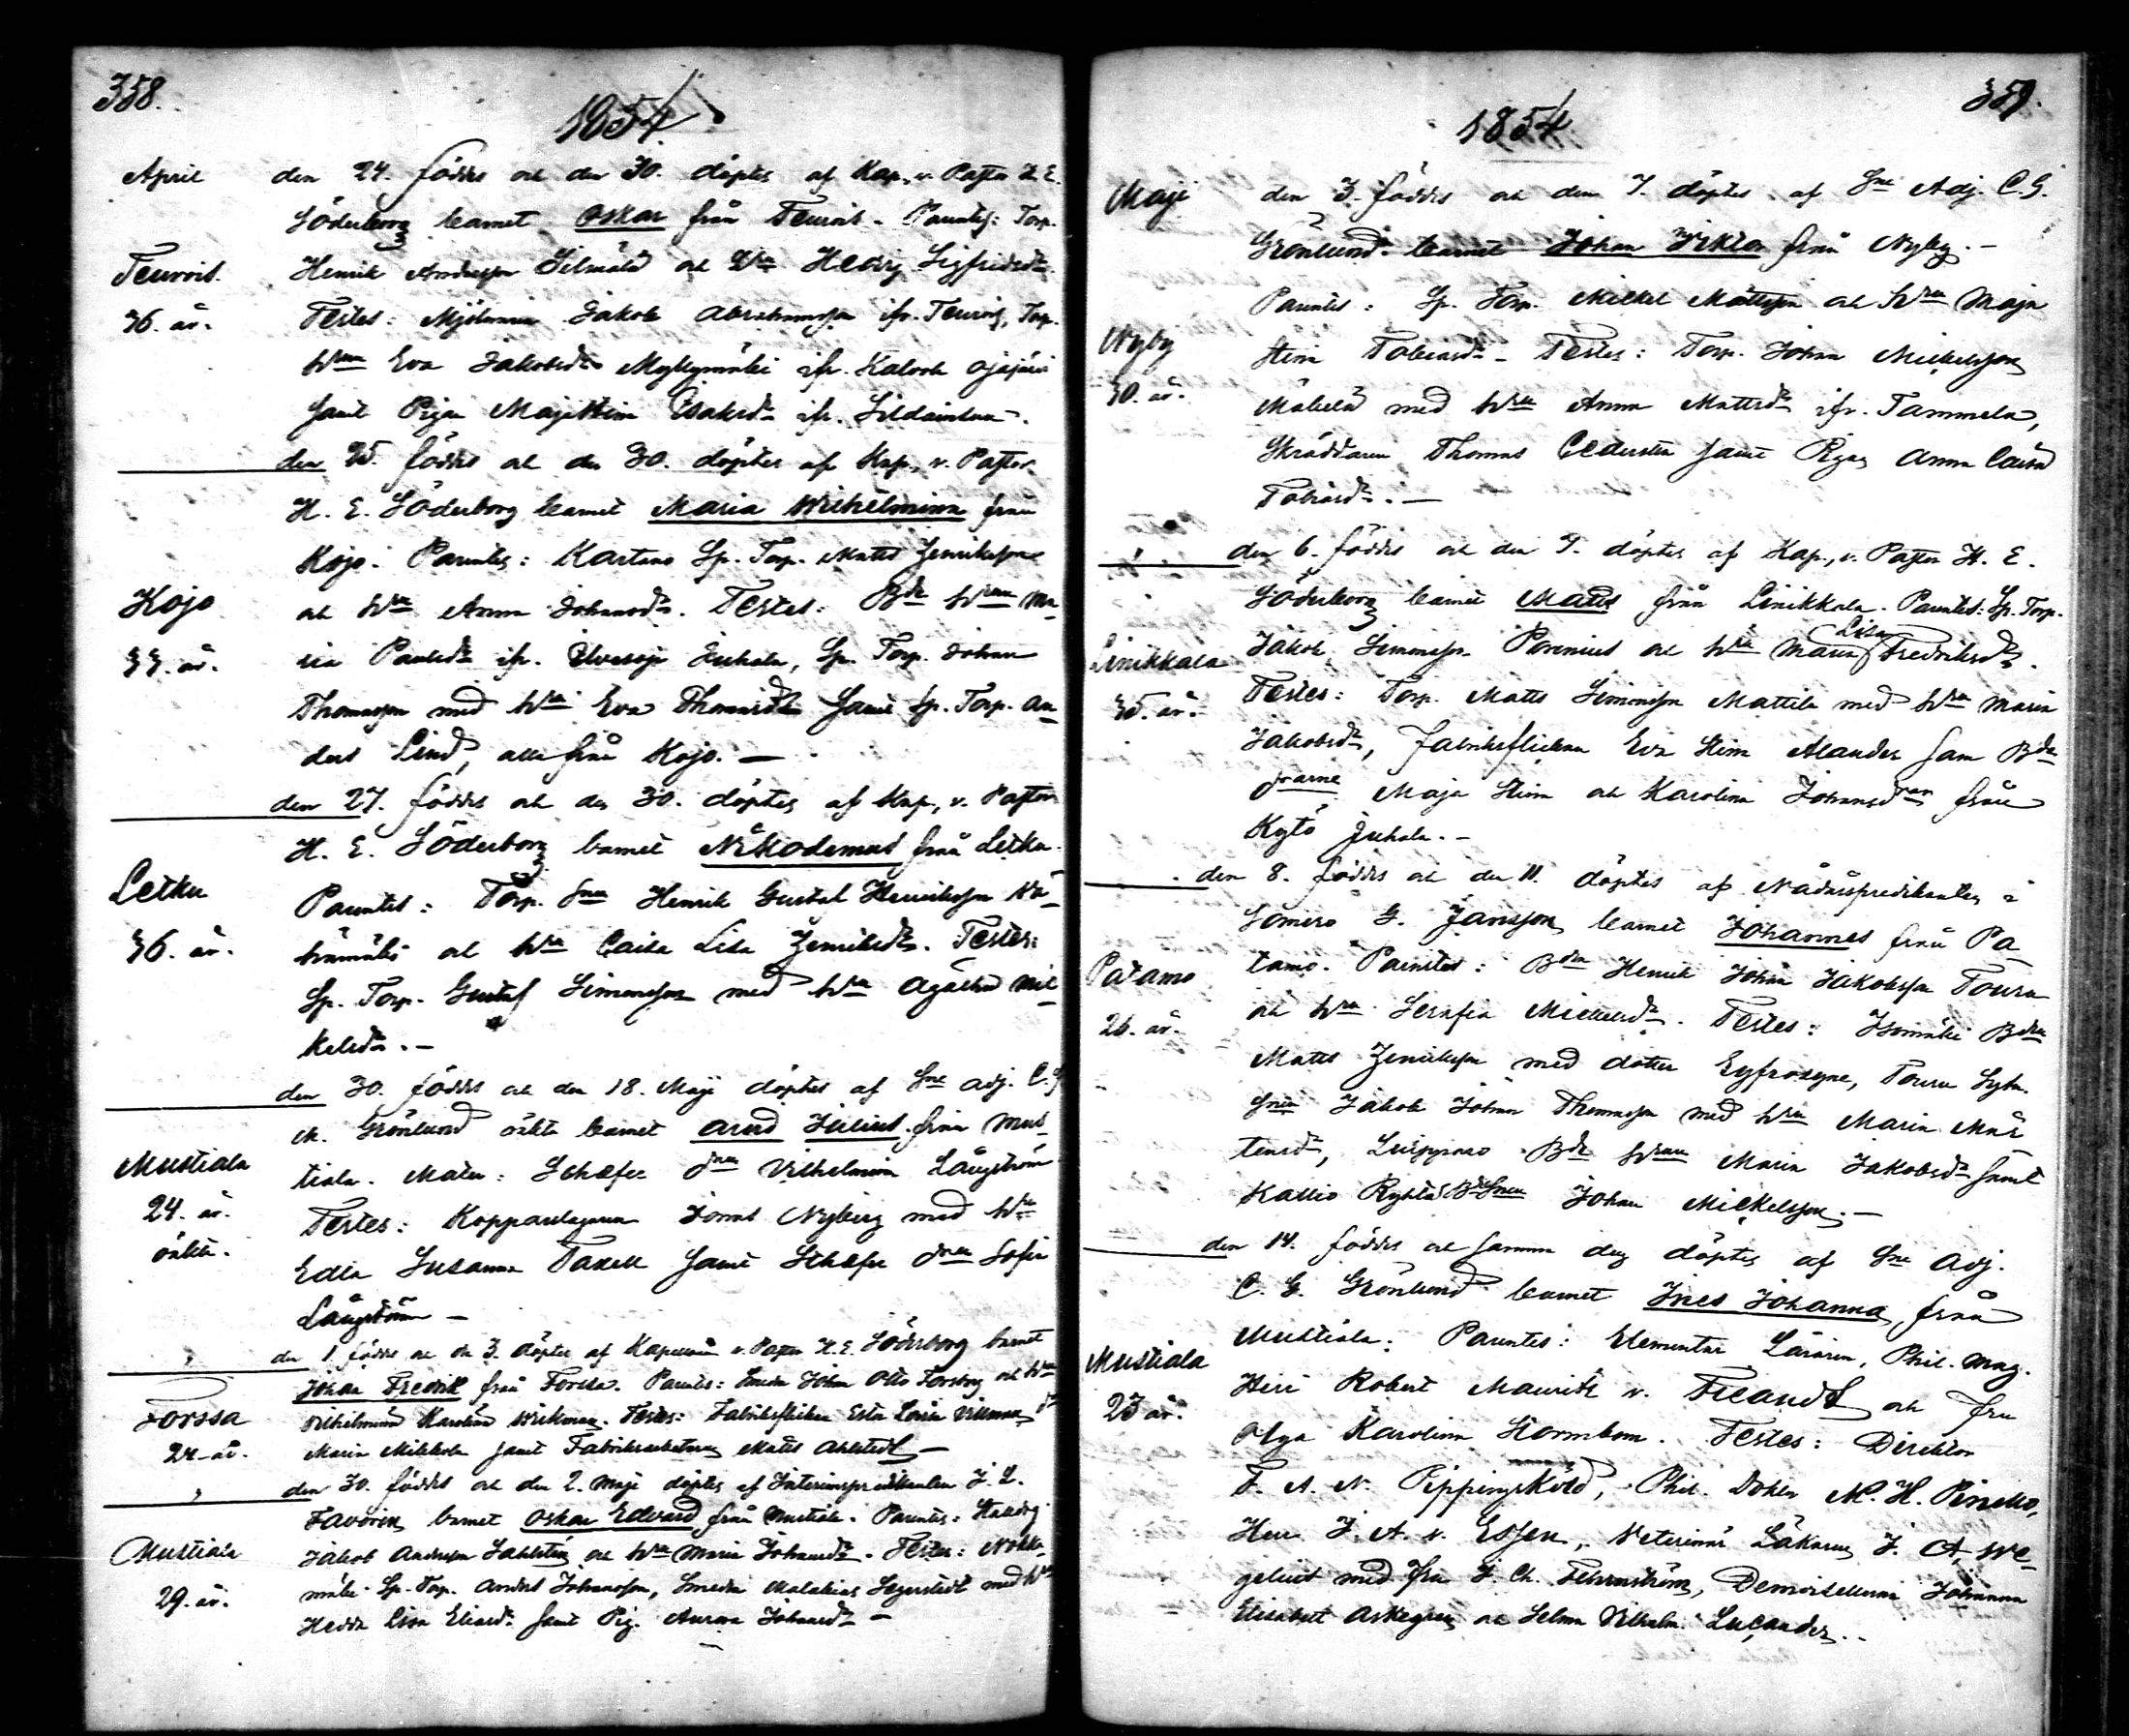 358.
1854.
April den 24. föddes och den 30. döptes af Kap., v. Pastor H. E.
Söderborg barnet Oskar från Teurois. Parentes: Torp.
Teurois. Henrik Andersson Silmälä och Hru Hedvig Sigfridsdr
36. år. Testes: Mjölnaren Jakob Abrahamsson ifr. Teurois, Torp.
Hrun Eva Jakobsdr Myllymäki ifr. Kaloch Ojajärvi
samt Pigan Maja Stina Isaksdr ifr.
den 25. föddes och den 30. döptes af Kap., v. Pastor
H. E. Söderborg barnet Maria Wilhelmina från
Kojo. Parentes: Kartano Sp. Torp. Matts Henriksson
Kojo och Hru Anna Johansdr. Testes: Bde Hrun Ma-
33. år. ria Paulsdr ifr. Juhala, Sp. Torp. Johan
Thomasson med Hru Eva Thomasdr samt Sp. Torp. An-
ders Lind, alla från Kojo. —
den 27. föddes och den 30. döptes af Kap., v. Pastor
H. E. Söderborg barnet Nikodemus från Letku.
Letku Parentes: Torp. Sne Henrik Gustaf Henriksson
36. år. och Hru Caisa Lisa Henriksdr. Testes:
Sp. Torp. Gustaf Simonsson med Hru Agatha Mic-
kelsdr. —
den 30. föddes och den 18. Maji döptes af Sne Adj. C. G.
Grönlund oäkta barnet Arvid Julius från Mus-
Mustiala tiala. Mater: Schæfer Wilhelmina Långström
24. år. Testes: Kopparslagaren Jonas Nyberg med Hru
oäkta. Edla Susanna Taxell samt Schæfer Sofia
Långström —
den 1. föddes och den 3. döptes af Kapellan v. Pastor H. E. Söderborg barnet
Johan Fredrik från Forssa. Parentes: Smeden Johan Otto Forsberg och Hru
Forssa Wilhelmina Karolina Wickman. Testes: Fabriksflickan Ester Lovisa Willman,
år. Maria Mikkola samt Fabriksarbetaren Matts Ahlstedt —
den 30. föddes och den 2. Maji döptes af Interimspredikanten J. L.
Favorin barnet Oskar Edvard från Mustiala. Parentes:
Mustiala Jakob Andersson Sahlstén och Hru Maria Johansdr. Testes:
29. år. mäki Sp. Torp. Anders Johansson, Smeden Malakias Segerstedt med Hru
Hedda Lisa Eliasdr samt Pig. Aurora Johansdr —
359.
1854.
Maji den 3. föddes och den 7. döptes af Sne Adj. C. G.
Grönlund barnet Johan Viktor från Nyby. —
Parentes: Sp. Torp. Mickel Mattsson och Hrun Maja
Nyby Stina Tobiasdr — Testes: Torp. Johan Mickelsson
30. år. Mäkelä med Hru Anna Mattsdr ifr. Tammela,
Skräddaren Thomas Cederstén samt Pigan Anna Caisa
Tobiasdr. —
den 6. föddes och den 7. döptes af Kap., v. Pastor H. E.
Söderborg barnet Matts från Linikkala. Parentes: Sp. Torp.
Lisa
Linikkala Jakob Simonsson Parenius och Hru Maria Fredriksdr.
35. år. Testes: Torp. Matts Simonsson Mattila med Hru Maria
Jakobsdr, Fabriksflickan Eva Stina Alander sam Bde
drarne Maja Stina och Karolina Johansdr från
Kytö Juhala. —
den 8. föddes och den 11. döptes af Nådårspredikanten i
Somero G. Jansson barnet Johannes från Pa-
Patamo tamo. Parentes: Bden Henrik Johan Jakobsson Touru
26. år. och Hru Serafia Mickelsdr. Testes: Isomäki Bden
Matts Henriksson med dotter Eyfrosyne, Touru Sytn.
Jakob Johan Thomasson med Hru Maria Mår-
tensdr, Bde Hrun Maria Jakobsdr samt
Kallio Bdesnen Johan Mickelsson. —
den 14. föddes och samma dag döptes af Sne Adj.
C. G. Grönlund barnet Ines Johanna från
Mustiala. Parentes: Elementar Läraren, Phil. Mag.
Mustiala Herr Robert Mauritz v. Freandt och Fru
23 år. Olga Karolina Hornborn. Testes: Direktor
F. A. N. Pippingsköld, Phil. Doktor M. H. Pinello,
Herr J. A. v. Essen, Veterinär Läkaren J. A. We-
gelius med Fru J. Ch. Fehrnström, Demoisellerna Johanna
Elisabet Askegren och Selma Vilhelm. Lucander. —